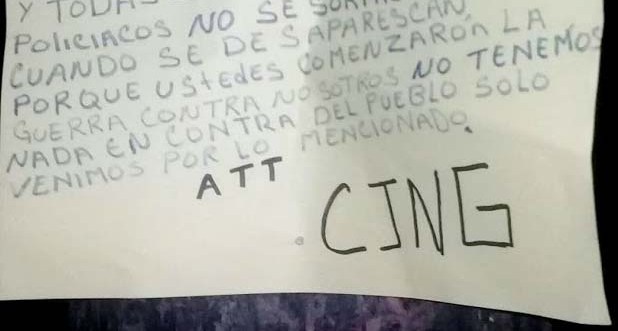 Y TODAS
POLICIACOS NO SE
CUANDO SE DESAPARESCAN
PORQUE USTEDES COMENZARON LA
GUERRA CONTRA NOSOTROS NO TENEMOS
NADA EN CONTRA DEL PUEBLO SOLO
VENIMOS POR LO MENCIONADO.
ATT
.CJNG